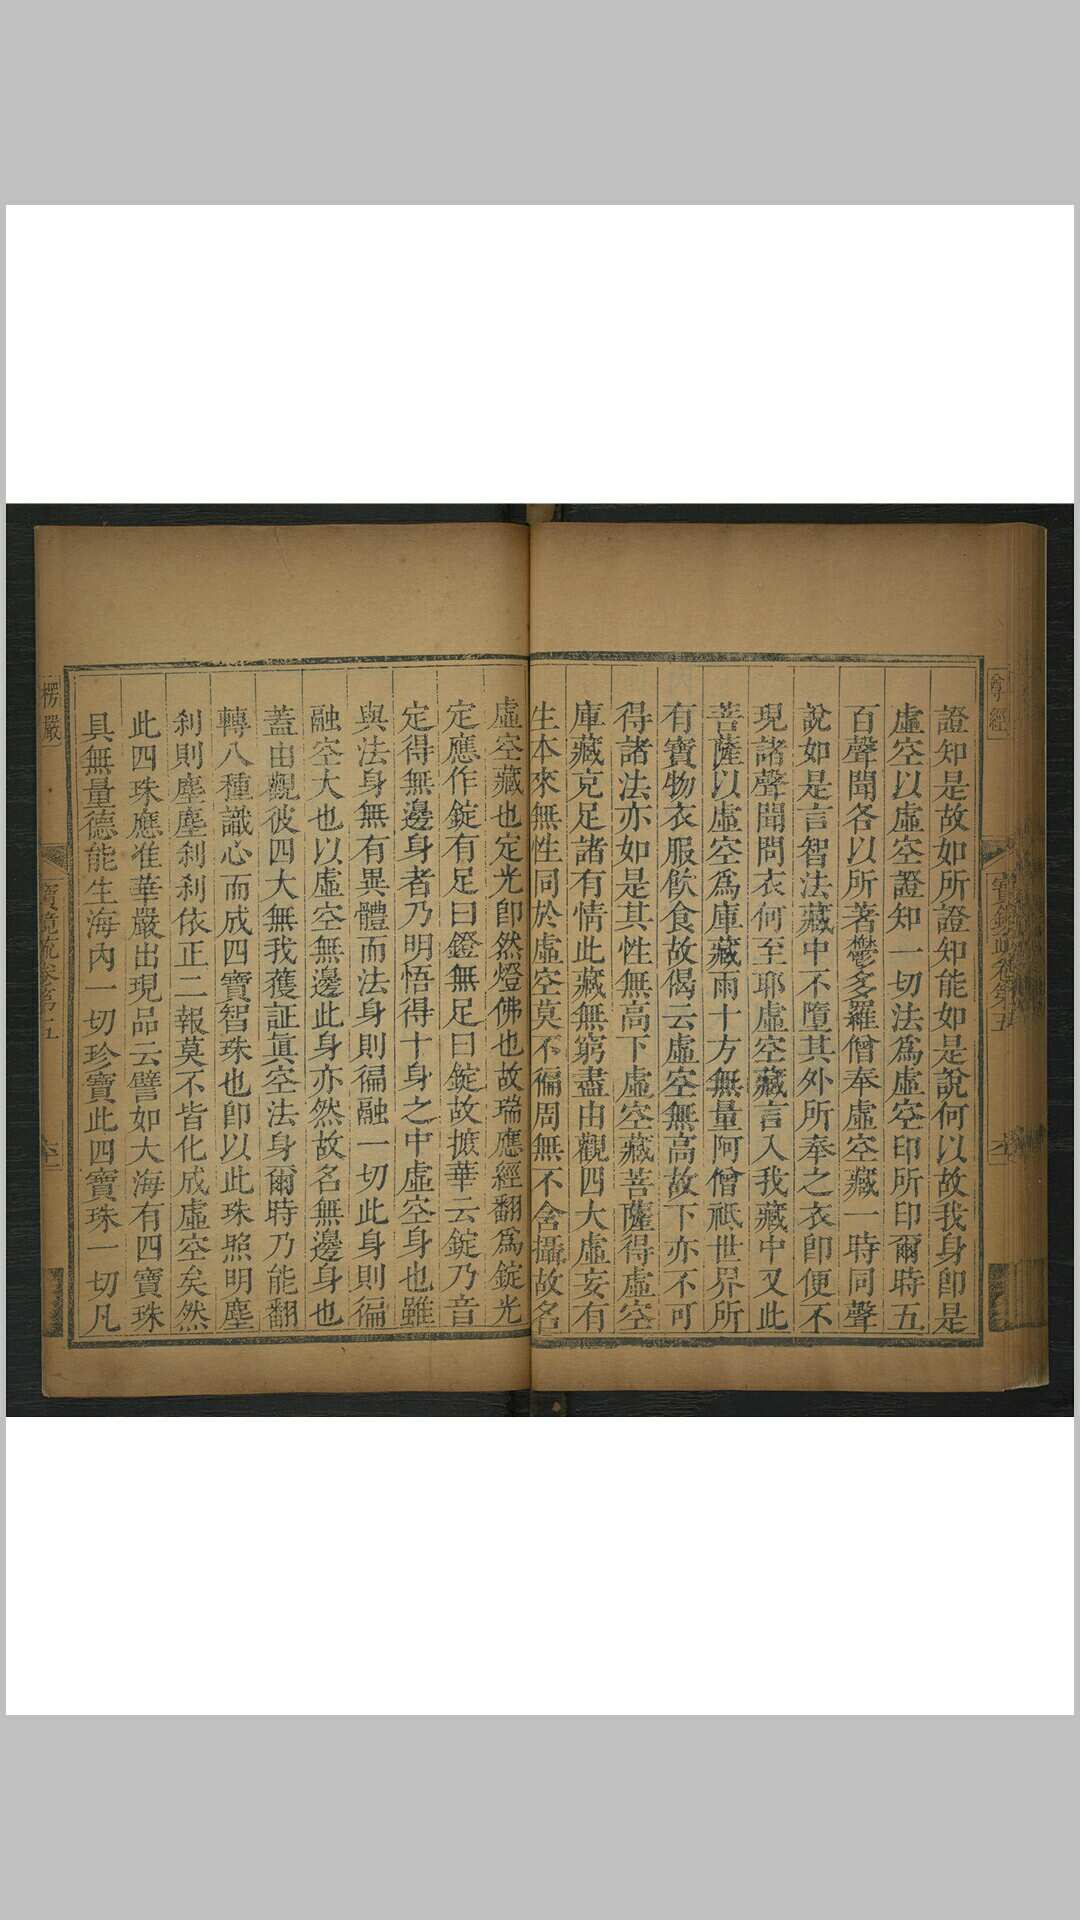 證知是故如所證知能如是說何以故我身卽是
虛空以虛空證知一切法爲虛空印所印爾時五
百聲聞各以所著鬱多羅僧奉虛空藏一時同聲
說如是言智法藏中不墮其外所奉之衣卽便不
現諸聲聞問衣何至耶虛空藏言入我藏中又此
菩薩以虛空爲庫藏雨十方無量阿僧祇世界所
有寶物衣服飲食故偈云虛空無高故下亦不可
得諸法亦如是其性無高下虛空藏菩薩得虛空
庫藏充足諸有情此藏無窮盡由觀四大虛妄有
生本來無性同於虛空莫不徧周無不含攝故名
虛空藏也定光卽然燈佛也故瑞應經翻爲錠光
定應作錠有足曰鐙無足曰錠故摭華云錠乃音
定得無邊身者乃明悟得十身之中虛空身也雖
與法身無有異體而法身則徧融一切此身則徧
融空大也以虛空無邊此身亦然故名無邊身也
蓋由觀彼四大無我獲証眞空法身爾時乃能翻
轉八種識心而成四寶智珠也卽以此珠照明塵
刹則塵塵刹刹依正二報莫不皆化成虛空矣然
此四珠應准華嚴出現品云譬如大海有四寶珠
具無量德能生海內一切珍寶此四寶珠一切凡
楞嚴
寶鏡疏卷第五